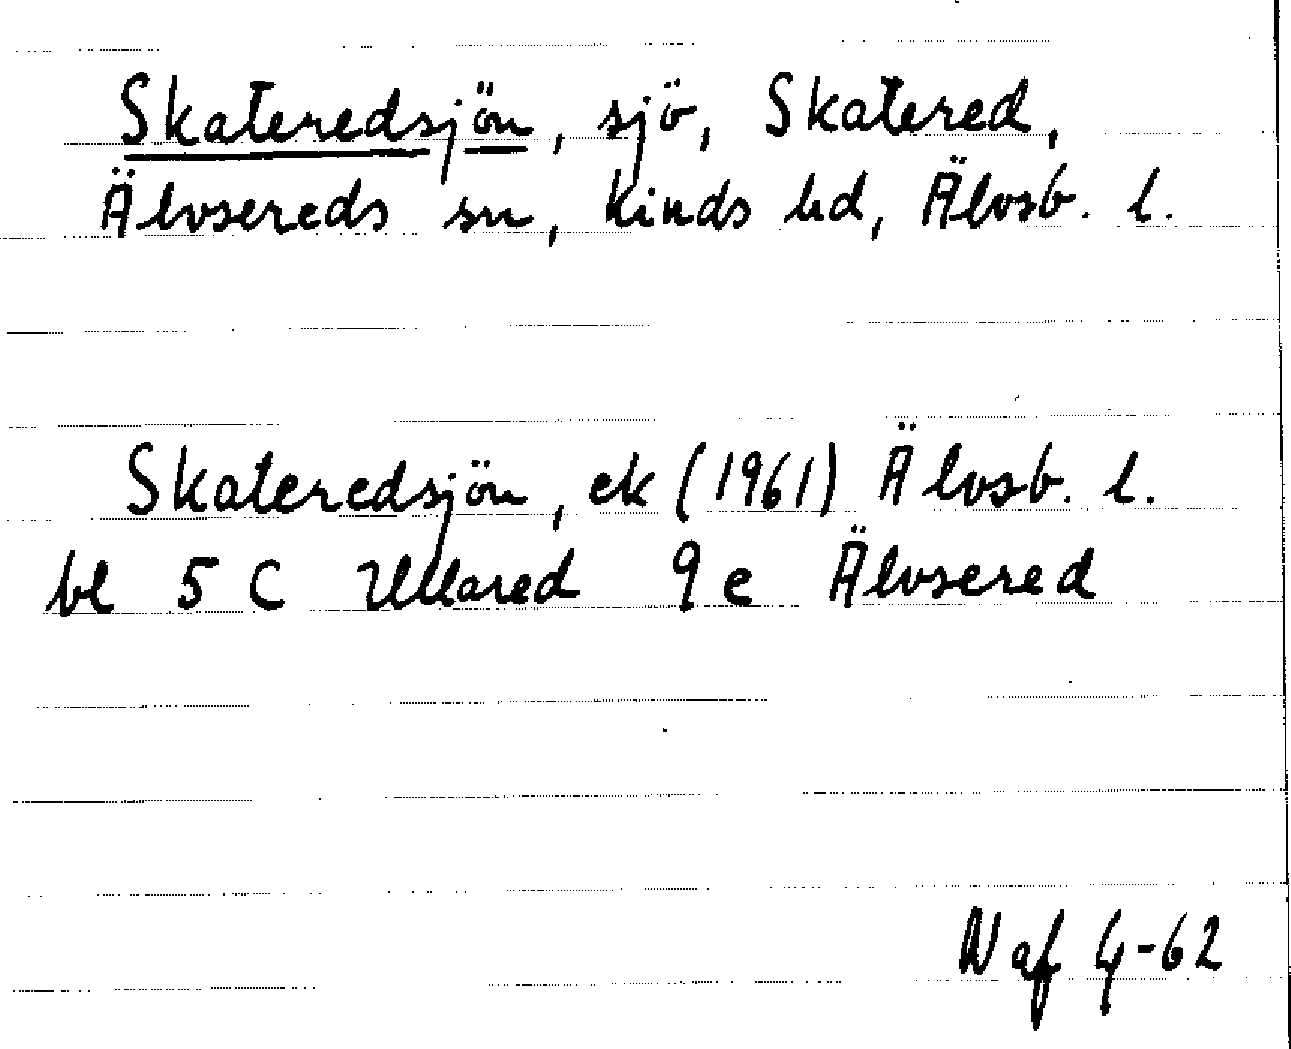 Skateredsjön, sjö, Skatered,
Älvsereds sn, Kinds hd, Älvsb. l.
Skateredsjön, ek (1961) Älvsb. l.
bl 5 C Ullared 9 e Älvsered
N af G-62